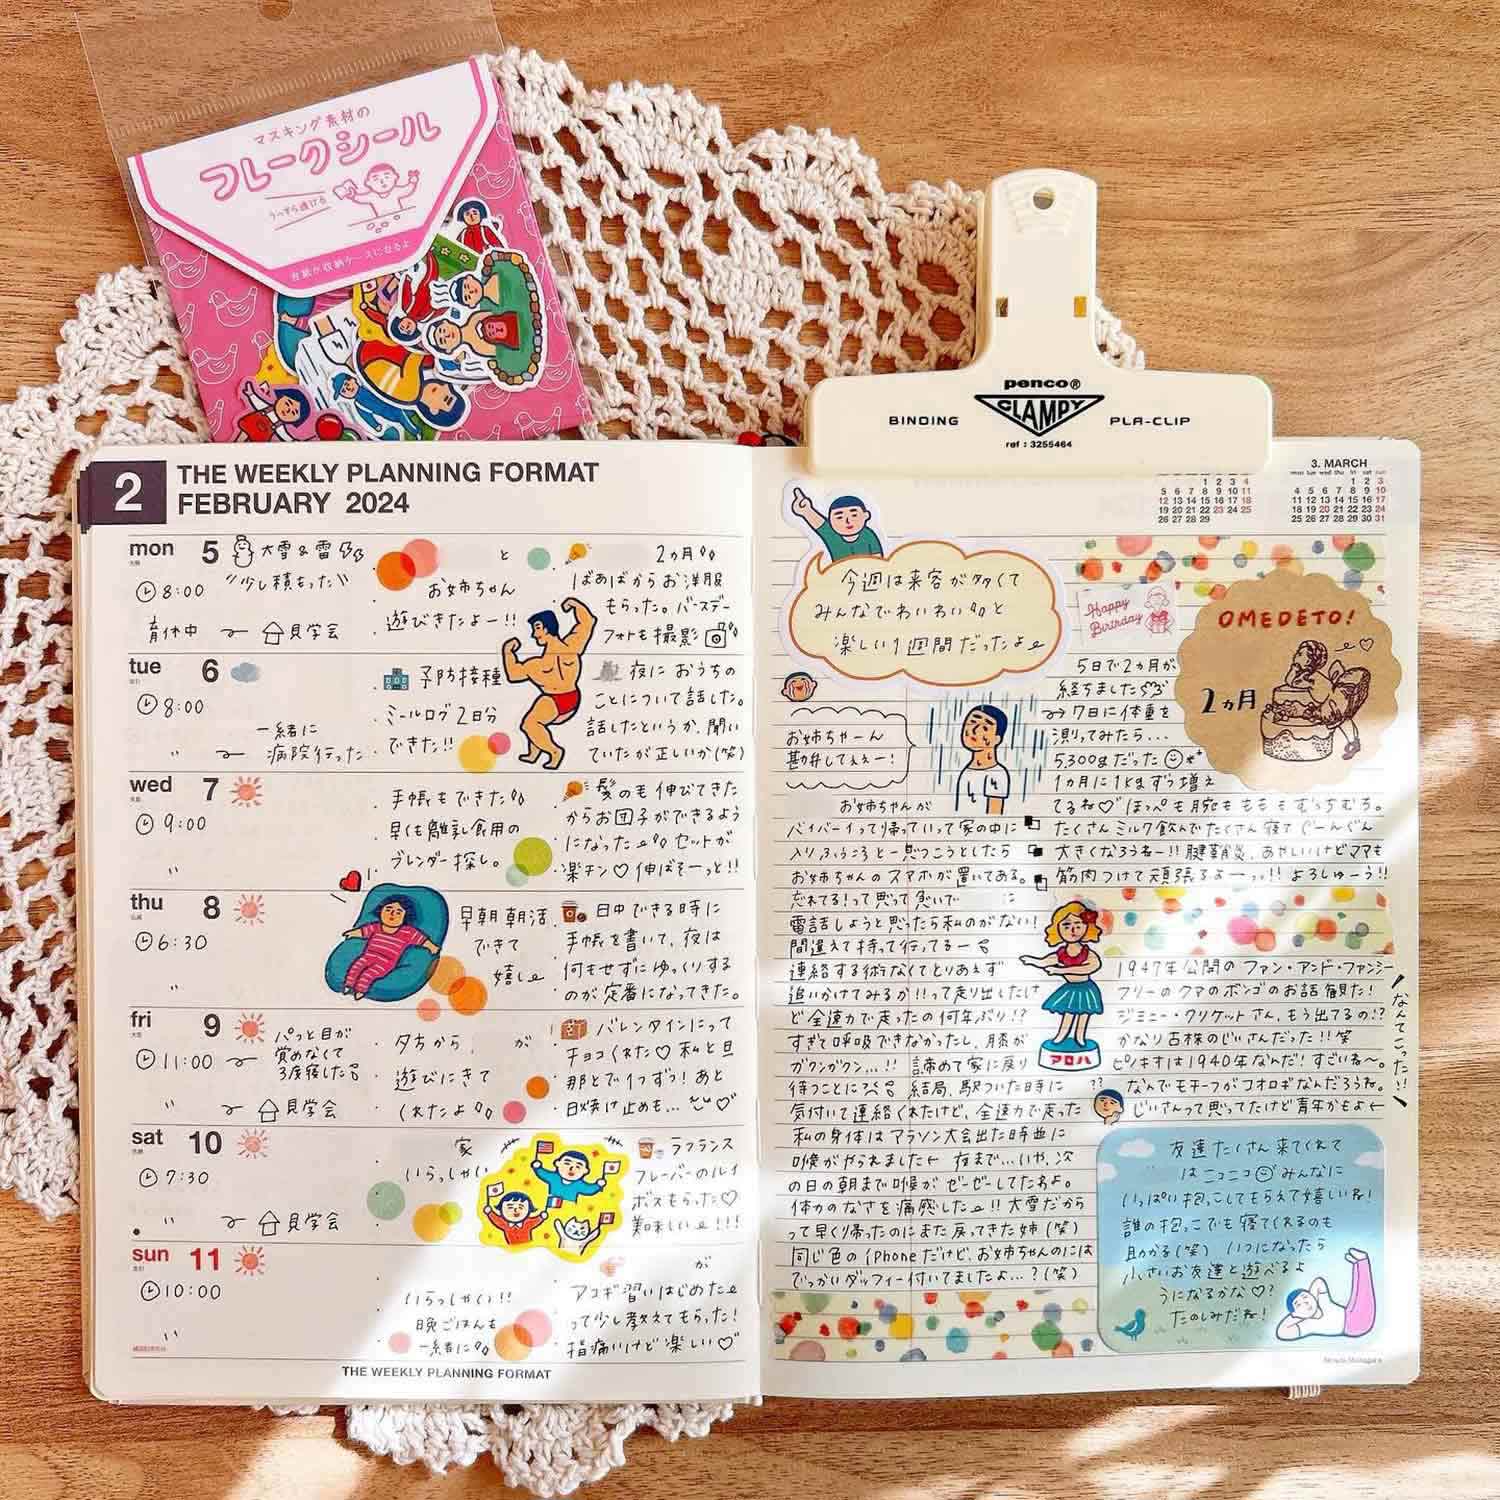 マスキング素材の
フレークシール
うっすら透ける
台紙が収納ケースになるよ
penco®
CLAMPY
BINDING
PLA-CLIP
ref : 3255464
2
THE WEEKLY PLANNING FORMAT
FEBRUARY 2024
mon 5 大雪&雷
8:00 "少し積もった"
育休中 見学会
と
お姉ちゃん
遊びきたよー!!
2ヵ月
ばあばからお洋服
もらった。バースデー
フォトも撮影
tue 6
8:00
〃
一緒に
病院行った
予防接種
ミールログ2日分
できた!!
夜におうちの
ことについて話した。
話したというか、聞い
ていたが正しいか(笑)
wed 7
9:00
〃
手帳もできた
早くも離乳食用の
ブレンダー探し。
髪のも伸びてきた
からお団子ができるよう
になった セットが
楽チン♡伸ばそーっと!!
thu 8
6:30
〃
早朝朝活
できて
嬉し
日中できる時に
手帳を書いて、夜は
何もせずにゆっくりする
のが定番になってきた。
fri 9
11:00
パっと目が
覚めなくて
3度寝した
〃 見学会
夕ちから が
遊びにきて
くれたよ
バレンタインにって
チョコくれた♡私と旦
那とで1つずつ!あと
日焼け止めも…
sat 10
7:30
〃 見学会
家
いらっしゃい
ラフランス
フレーバーのルイ
ボスもらった♡
美味しい!!!
sun 11
10:00
〃
いらっしゃい!!
晩ごはんも
一緒に
が
アコギ習いはじめた
って少し教えてもらった!
指痛いけど楽しい♡
THE WEEKLY PLANNING FORMAT
1 2 3 4
5 6 7 8 9 10 11
12 13 14 15 16 17 18
19 20 21 22 23 24 25
26 27 28 29
3. MARCH
mon tue wed thu fri sat sun
1 2 3
4 5 6 7 8 9 10
11 12 13 14 15 16 17
18 19 20 21 22 23 24
25 26 27 28 29 30 31
今週は来客が多くて
みんなでわいわいと
楽しい1週間だったよ
お姉ちゃーん
勘弁してぇぇー!
お姉ちゃんが
バイバーイって帰っていって家の中に
入りふぅころと一息つこうとしたら
お姉ちゃんのスマホが置いてある。
忘れてる!って思って急いで に
電話しようと思ったら私のがない!
間違えて持って行ってるー
連絡する術なくてとりあえず
追いかけてみるか!!って走り出したけ
ど全速力で走ったの何年ぶり!?
すぎて呼吸できなかったし、膝が
ガクンガクン…!! 諦めて家に戻り
待つことに 結局、駅ついた時に
気付いて連絡くれたけど、全速力で走った
私の身体はマラソン大会出た時並に
喉がやられました← 夜まで…いや、次
の日の朝まで喉がゼーゼーしてたわよ。
体力のなさを痛感した!! 大雪だから
って早く帰ったのにまた戻ってきた姉(笑)
同じ色のiPhoneだけど、お姉ちゃんのには
でっかいダッフィー付いてましたよ…?(笑)
Happy
Birthday
OMEDETO!
2ヵ月
5日で2ヵ月が
経ちました
→7日に体重を
測ってみたら…
5,300gだった
1ヵ月に1kgずつ増え
てるね♡ほっぺも腕もももむっちむち。
たくさんミルク飲んでたくさん寝てぐーんぐん
大きくなろうねー!! 腱鞘炎、あやしいけどママも
筋肉つけて頑張るよーっ!! よろしゅーう!!
アロハ
1947年公開のファン・アンド・ファンシー
フリーのクマのボンゴのお話観た!
ジミニー・クリケットさん、もう出てるの!?
かなり古株のじいさんだった!!笑
ピノキオは1940年なんだ!すごいね〜。
なんでモチーフがコオロギなんだろうね。
じいさんって思ってたけど青年かもよ←
なんてこった!!
??
友達たくさん来てくれて
はニコニコ みんなに
いっぱい抱っこしてもらえて嬉しいね!
誰の抱っこでも寝てくれるのも
助かる(笑) いつになったら
小さいお友達と遊べるよ
うになるかな♡?
たのしみだね!